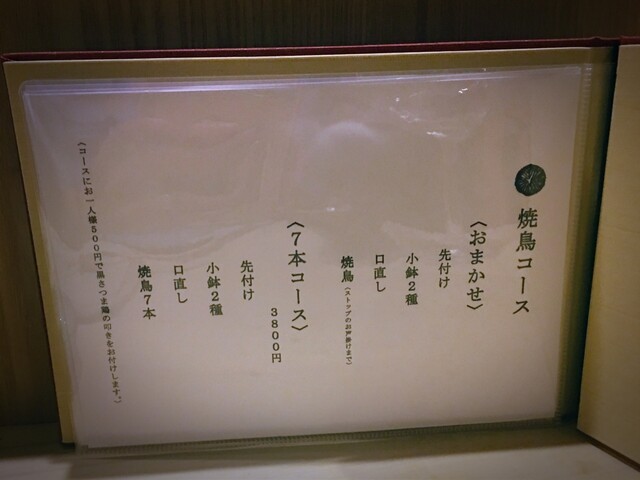 焼鳥コース
〈おまかせ〉
先付け
小鉢2種
口直し
焼鳥（ストップのお声掛けまで）
〈7本コース〉
3800円
先付け
小鉢2種
口直し
焼鳥7本
（コースにお一人様500円で黒さつま鶏の叩きをお付けします。）